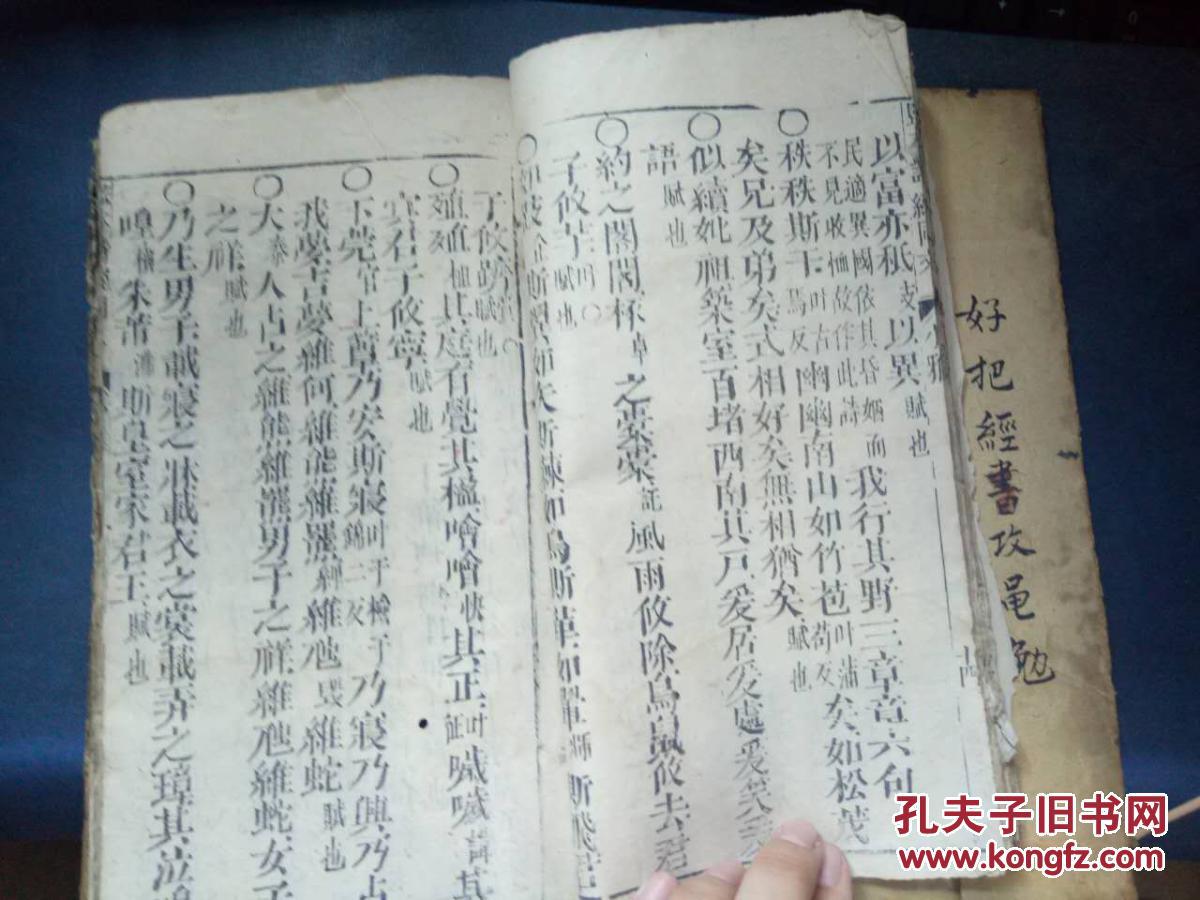 以富亦秪支以異賦也
民適異國依其昏姻而
不見收恤故作此詩
我行其野三章章六句
○秩秩斯干叶古焉反幽幽南山如竹苞叶蒲苟反矣如松茂
矣兄及弟矣式相好矣無相猶矣賦也
○似續妣祖築室百堵西南其戶爰居爰處爰笑爰
語賦也
○約之閣閣椓卓之橐橐託風雨攸除鳥鼠攸去君
子攸芋賦也
斯棘如鳥斯革如翬輝斯飛君
子攸躋賦也
○殖殖其庭有覺其楹噲噲快其正叶征噦噦
君子攸寧賦也
○下莞官上簟乃安斯寢叶于檢于錦二反乃寢乃興乃占
我夢吉夢維何維熊維羆維虺毀維蛇賦也
○大泰人占之維熊維羆男子之祥維虺維蛇女子
之祥賦也
○乃生男子載寢之牀載衣之裳載弄之璋其泣喤
喤朱芾斯皇室家君王賦也
十四
好把經書攻黽勉
孔夫子旧书网
www.kongfz.com